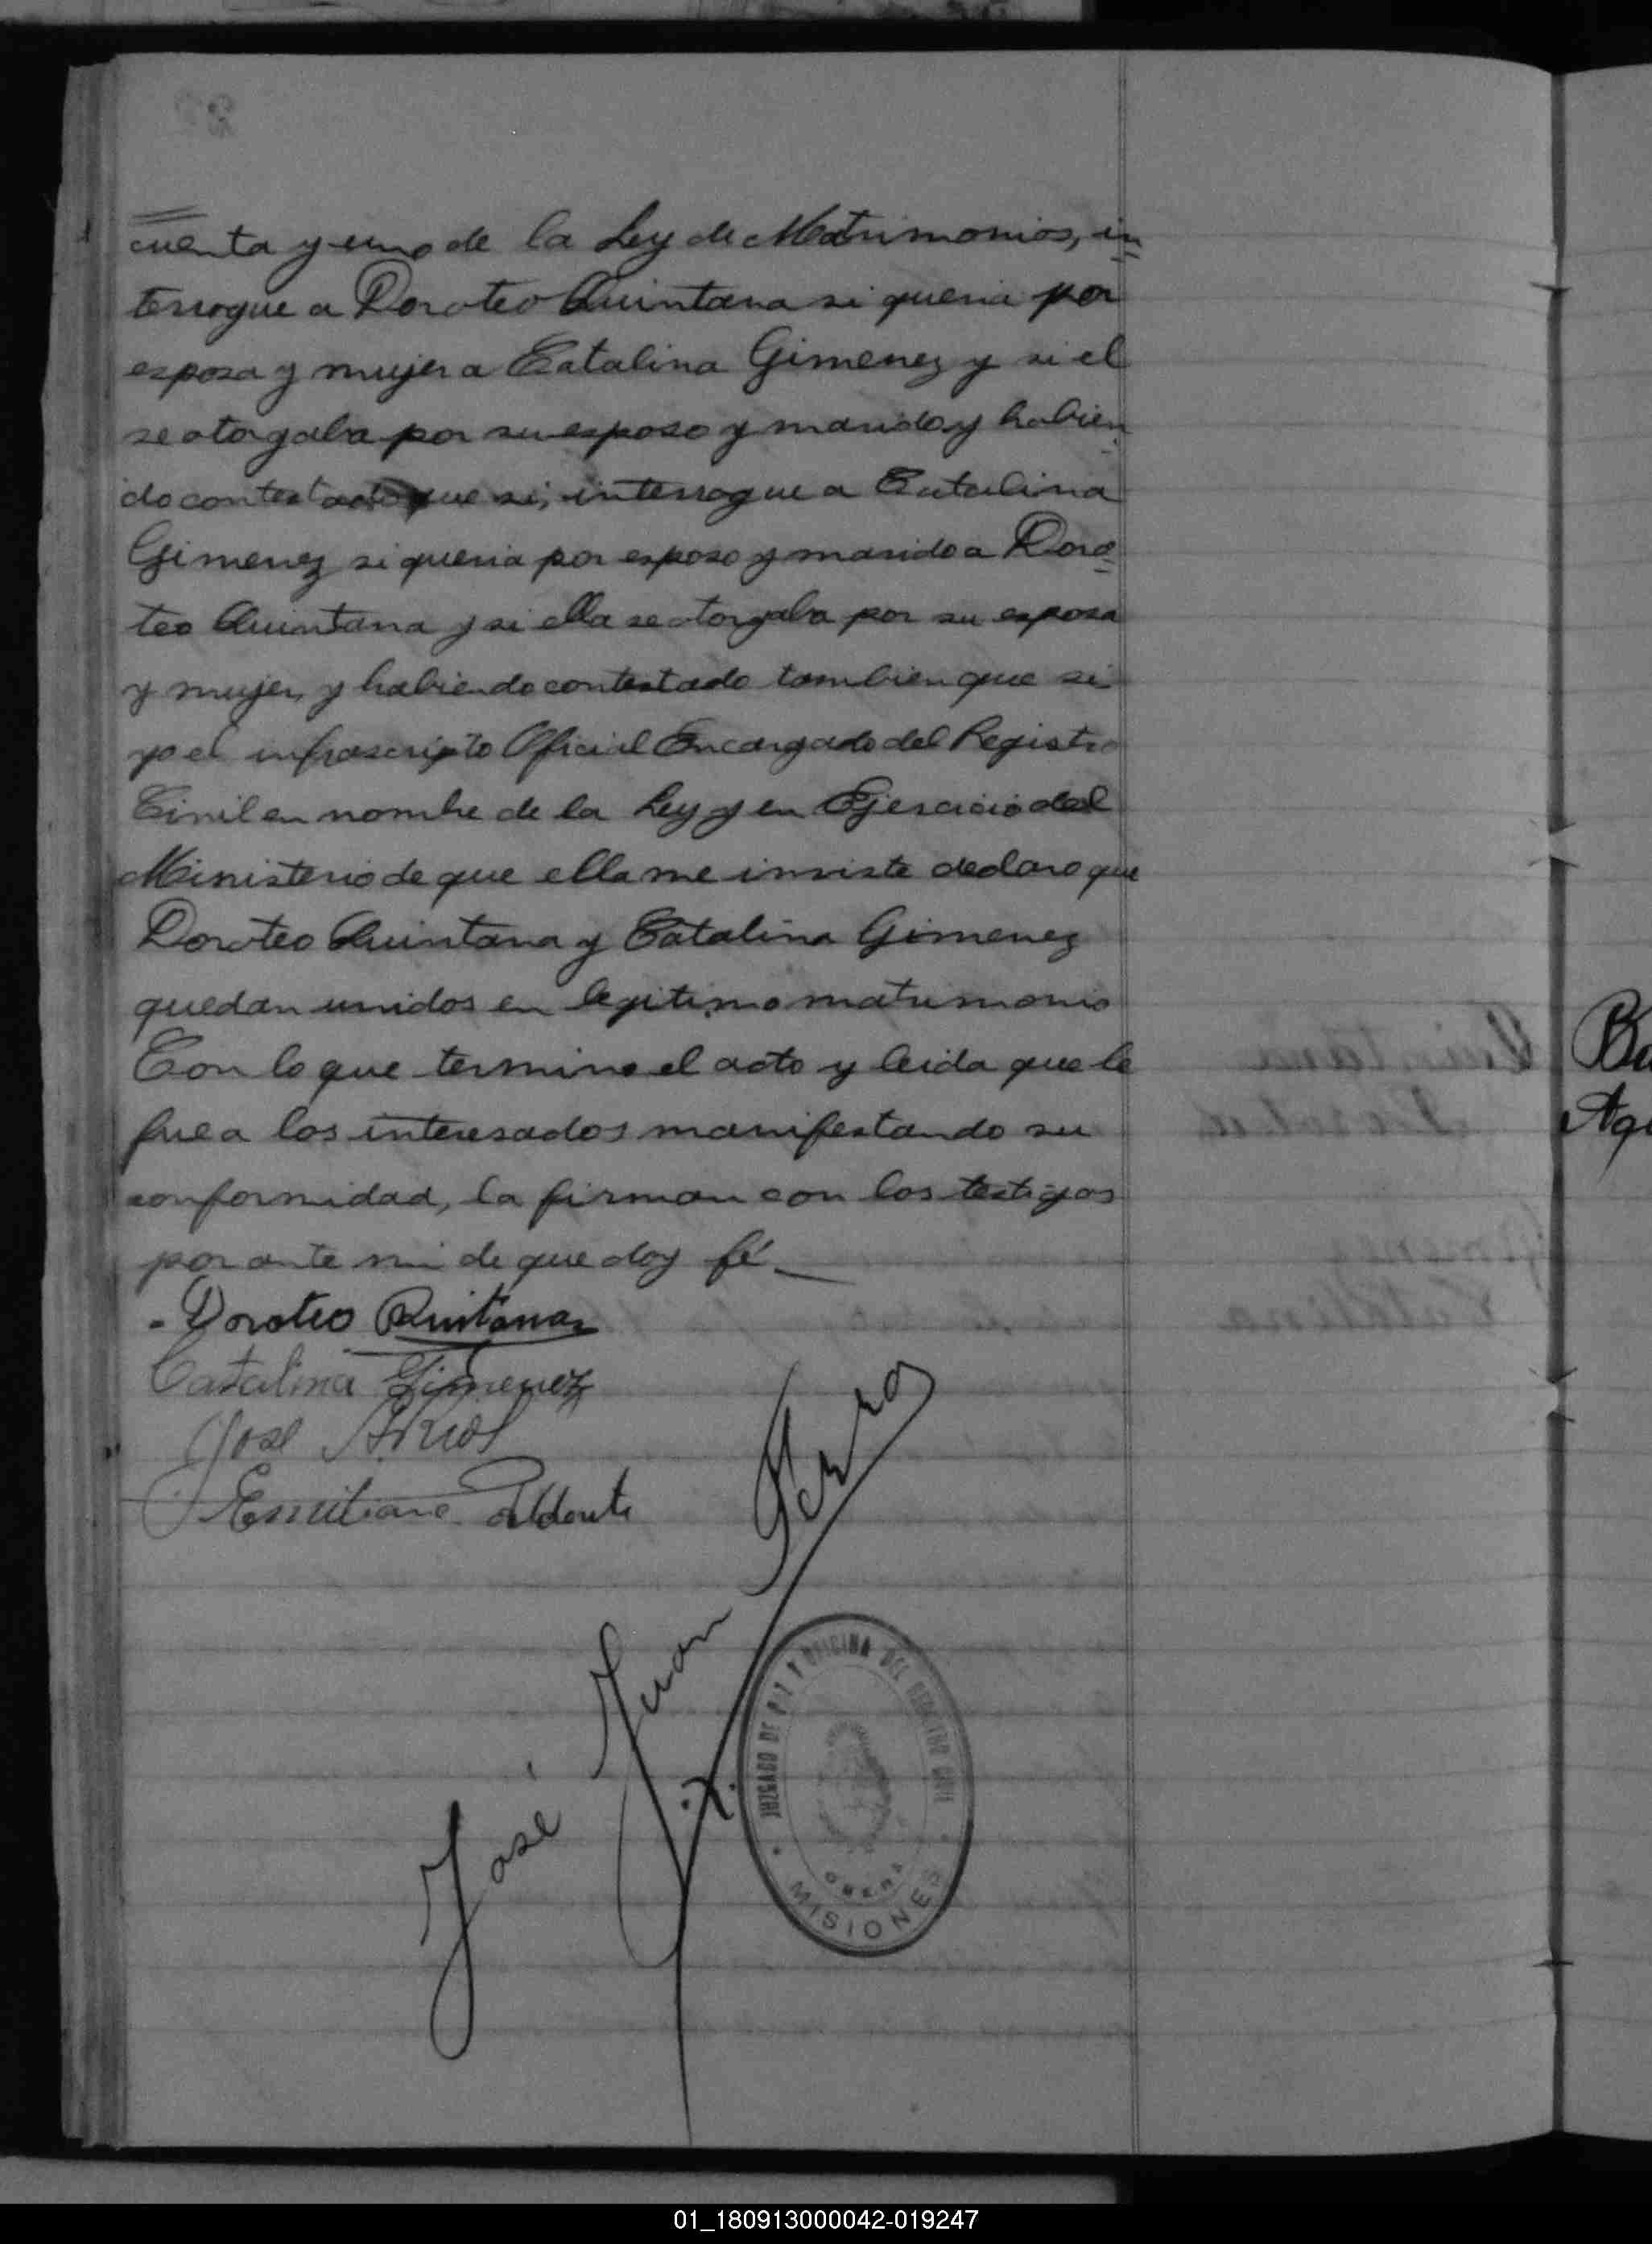 cuenta y uno de la Ley de Matrimonios, in
terrogue a Doroteo Quintana si queria por
esposa y mujer a Catalina Gimenez y si el
se otorgaba por su esposo y marido y habien
do contestado que si, interrogue a Catalina
Gimenez si queria por esposo y marido a Doro
teo Quintana y si ella se otorgaba por su esposa
y mujer, y habiendo contestado tambien que si
yo el infrascripto Oficial Encargado del Registro
Civil en nombre de la Ley y en Ejercicio del
Ministerio de que ella me inviste declaro que
Doroteo Quintana y Catalina Gimenez
quedan unidos en legitimo matrimonio
Con lo que termino el acto y leida que le
fue a los interesados manifestando su
conformidad, la firman con los testigos
por ante mi de que doy fé.
Doroteo Quintana
Catalina Gimenez
José
Emiliano
José Juan
JUZGADO DE PAZ Y OFICINA DEL REGISTRO CIVIL
OBERA
MISIONES
Quintana
Doroteo
Gimenez
Catalina
Ba
Ag
01_180913000042-019247